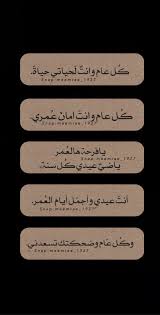 كُل عام وانتَ لحياتي حياةً.
Snap: meemiaa_1927
كُل عام وانتَ امانَ عُمري.
Snap: meemiaa_1927
يافرحة هالعُمر
Snap: meemiaa_1927
ياضيّ عيدي كُل سنة.
أنتَ عيدي وأجمَل أيام العُمر.
Snap: meemiaa_1927
وكُل عام وضحكتك تسعدني.
Snap: meemiaa_1927